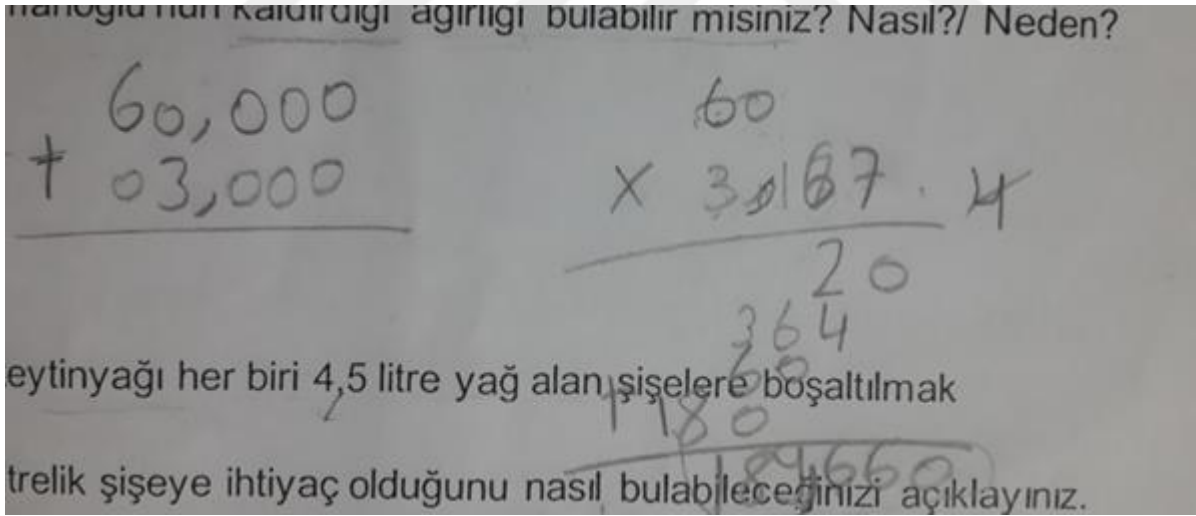 kaldırdığı ağırlığı bulabilir misiniz? Nasıl?/ Neden?
60,000
+ 03,000
60
x 4
20
364
60
180
184660
eytinyağı her biri 4,5 litre yağ alan şişelere boşaltılmak
trelik şişeye ihtiyaç olduğunu nasıl bulabileceğinizi açıklayınız.